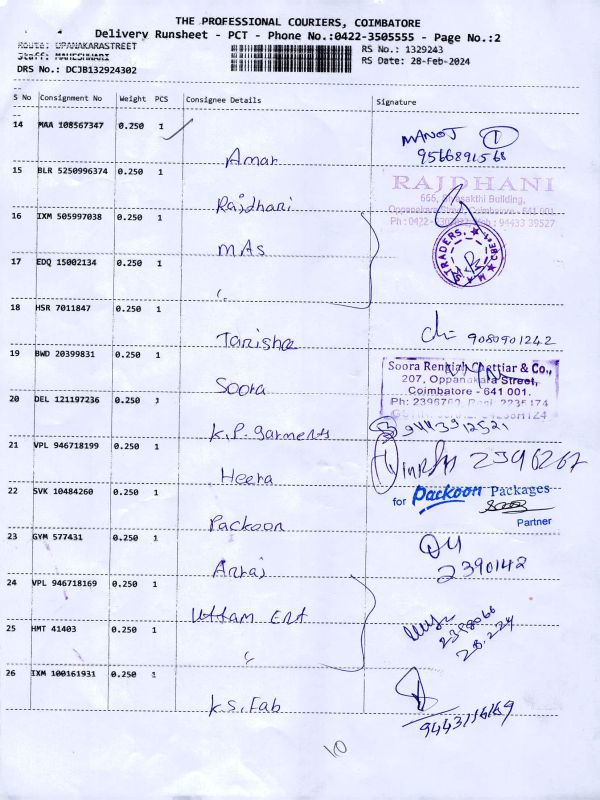 THE PROFESSIONAL COURIERS, COIMBATORE
Delivery Runsheet - PCT - Phone No.:0422-3505555 - Page No.:2
Route: UPANAKARASTREET
Staff: MAHESHWARI
RS No.: 1329243
RS Date: 28-Feb-2024
DRS No.: DCJB132924302
S No Consignment No Weight PCS Consignee Details Signature
14 MAA 108567347 0.250 1 Amar MANOJ 1
9566891568
15 BLR 5250996374 0.250 1 Rajdhani RAJDHANI
Building,
Coimbatore - 641 001.
94433 39527
16 IXM 505997038 0.250 1 MAS TRADERS
17 EDQ 15002134 0.250 1 "
18 HSR 7011847 0.250 1 Tanisha 9080901242
19 BWD 20399831 0.250 1 Soora Soora Chettiar & Co.,
207, Oppanakara Street,
Coimbatore - 641 001.
20 DEL 121197236 1 K.P. garments 9443912521
21 VPL 946718199 0.250 1 Heera 2396267
22 SVK 10484260 0.250 1 Packoon for Packoon Packages
Partner
23 GYM 577431 0.250 1 2390142
24 VPL 946718169 0.250 1 Uttam Ent 2398066
28.2.24
25 HMT 41403 0.250 1 "
26 IXM 100161931 0.250 1 K.S. Fab
10